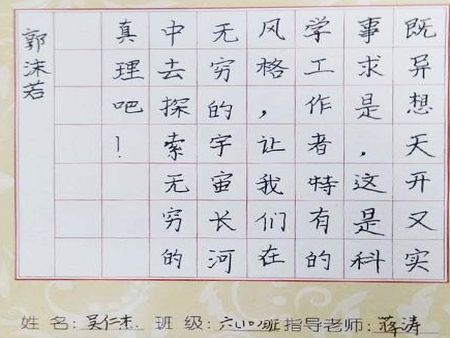 既异想天开又实
事求是，这是科
学工作者特有的
风格，让我们在
无穷的宇宙长河
中去探索无穷的
真理吧！
郭沫若
姓名:吴仁杰. 班级:六(10)班指导老师:蒋涛